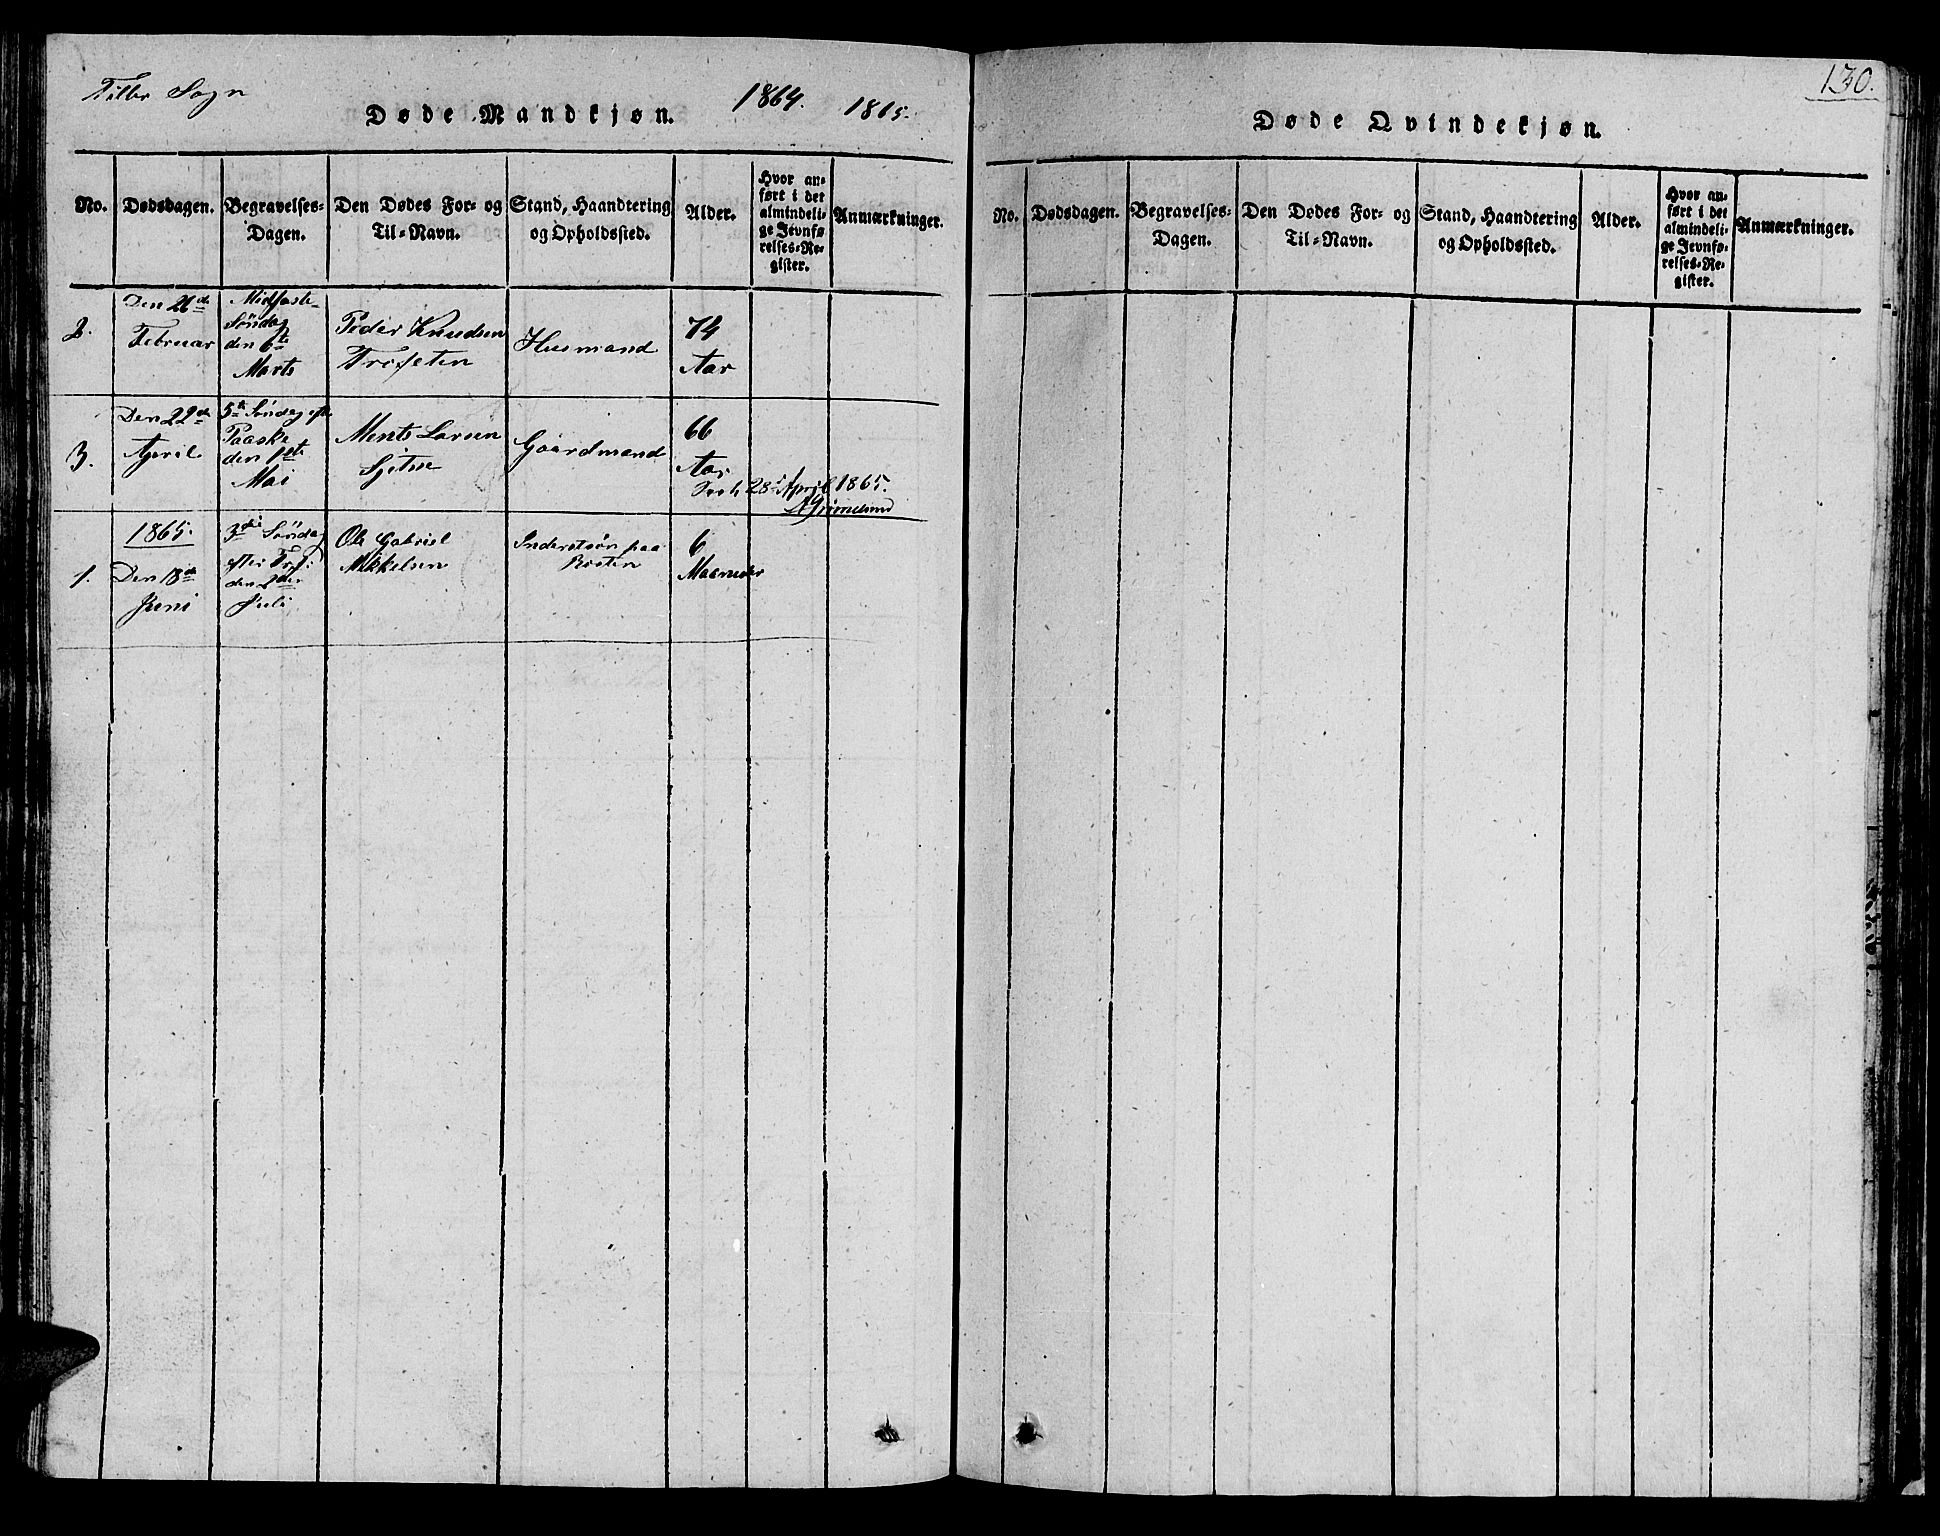 Tiller Sogn
1864. 1865.
Døde Mandkjøn.
No. Dødsdagen. Begravelses-Dagen. Den Dødes For- og Til-Navn. Stand, Haandtering og Opholdssted. Alder. Hvor anført i det almindelige Jevnførelses-Register. Anmærkninger.
2. Den 26de Februar Midfaste-Søndag den 6te Marts Peder Knudsen Husmand 74 Aar
3. Den 22de April 5te Søndag eft. Paaske den 1ste Mai Ments Larsen Sjetne Gaardmand 66 Aar
28de April 1865.
AGrimelund
1865.
1. Den 18de Juni 3die Søndag efter Tref: den 2den Juli Ole Gabriel Mikkelsen Inderstsøn paa Rosten 6 Maaneder
130.
Døde Qvindekjøn.
No. Dødsdagen. Begravelses-Dagen. Den Dødes For- og Til-Navn. Stand, Haandtering og Opholdssted. Alder. Hvor anført i det almindelige Jevnførelses-Register. Anmærkninger.